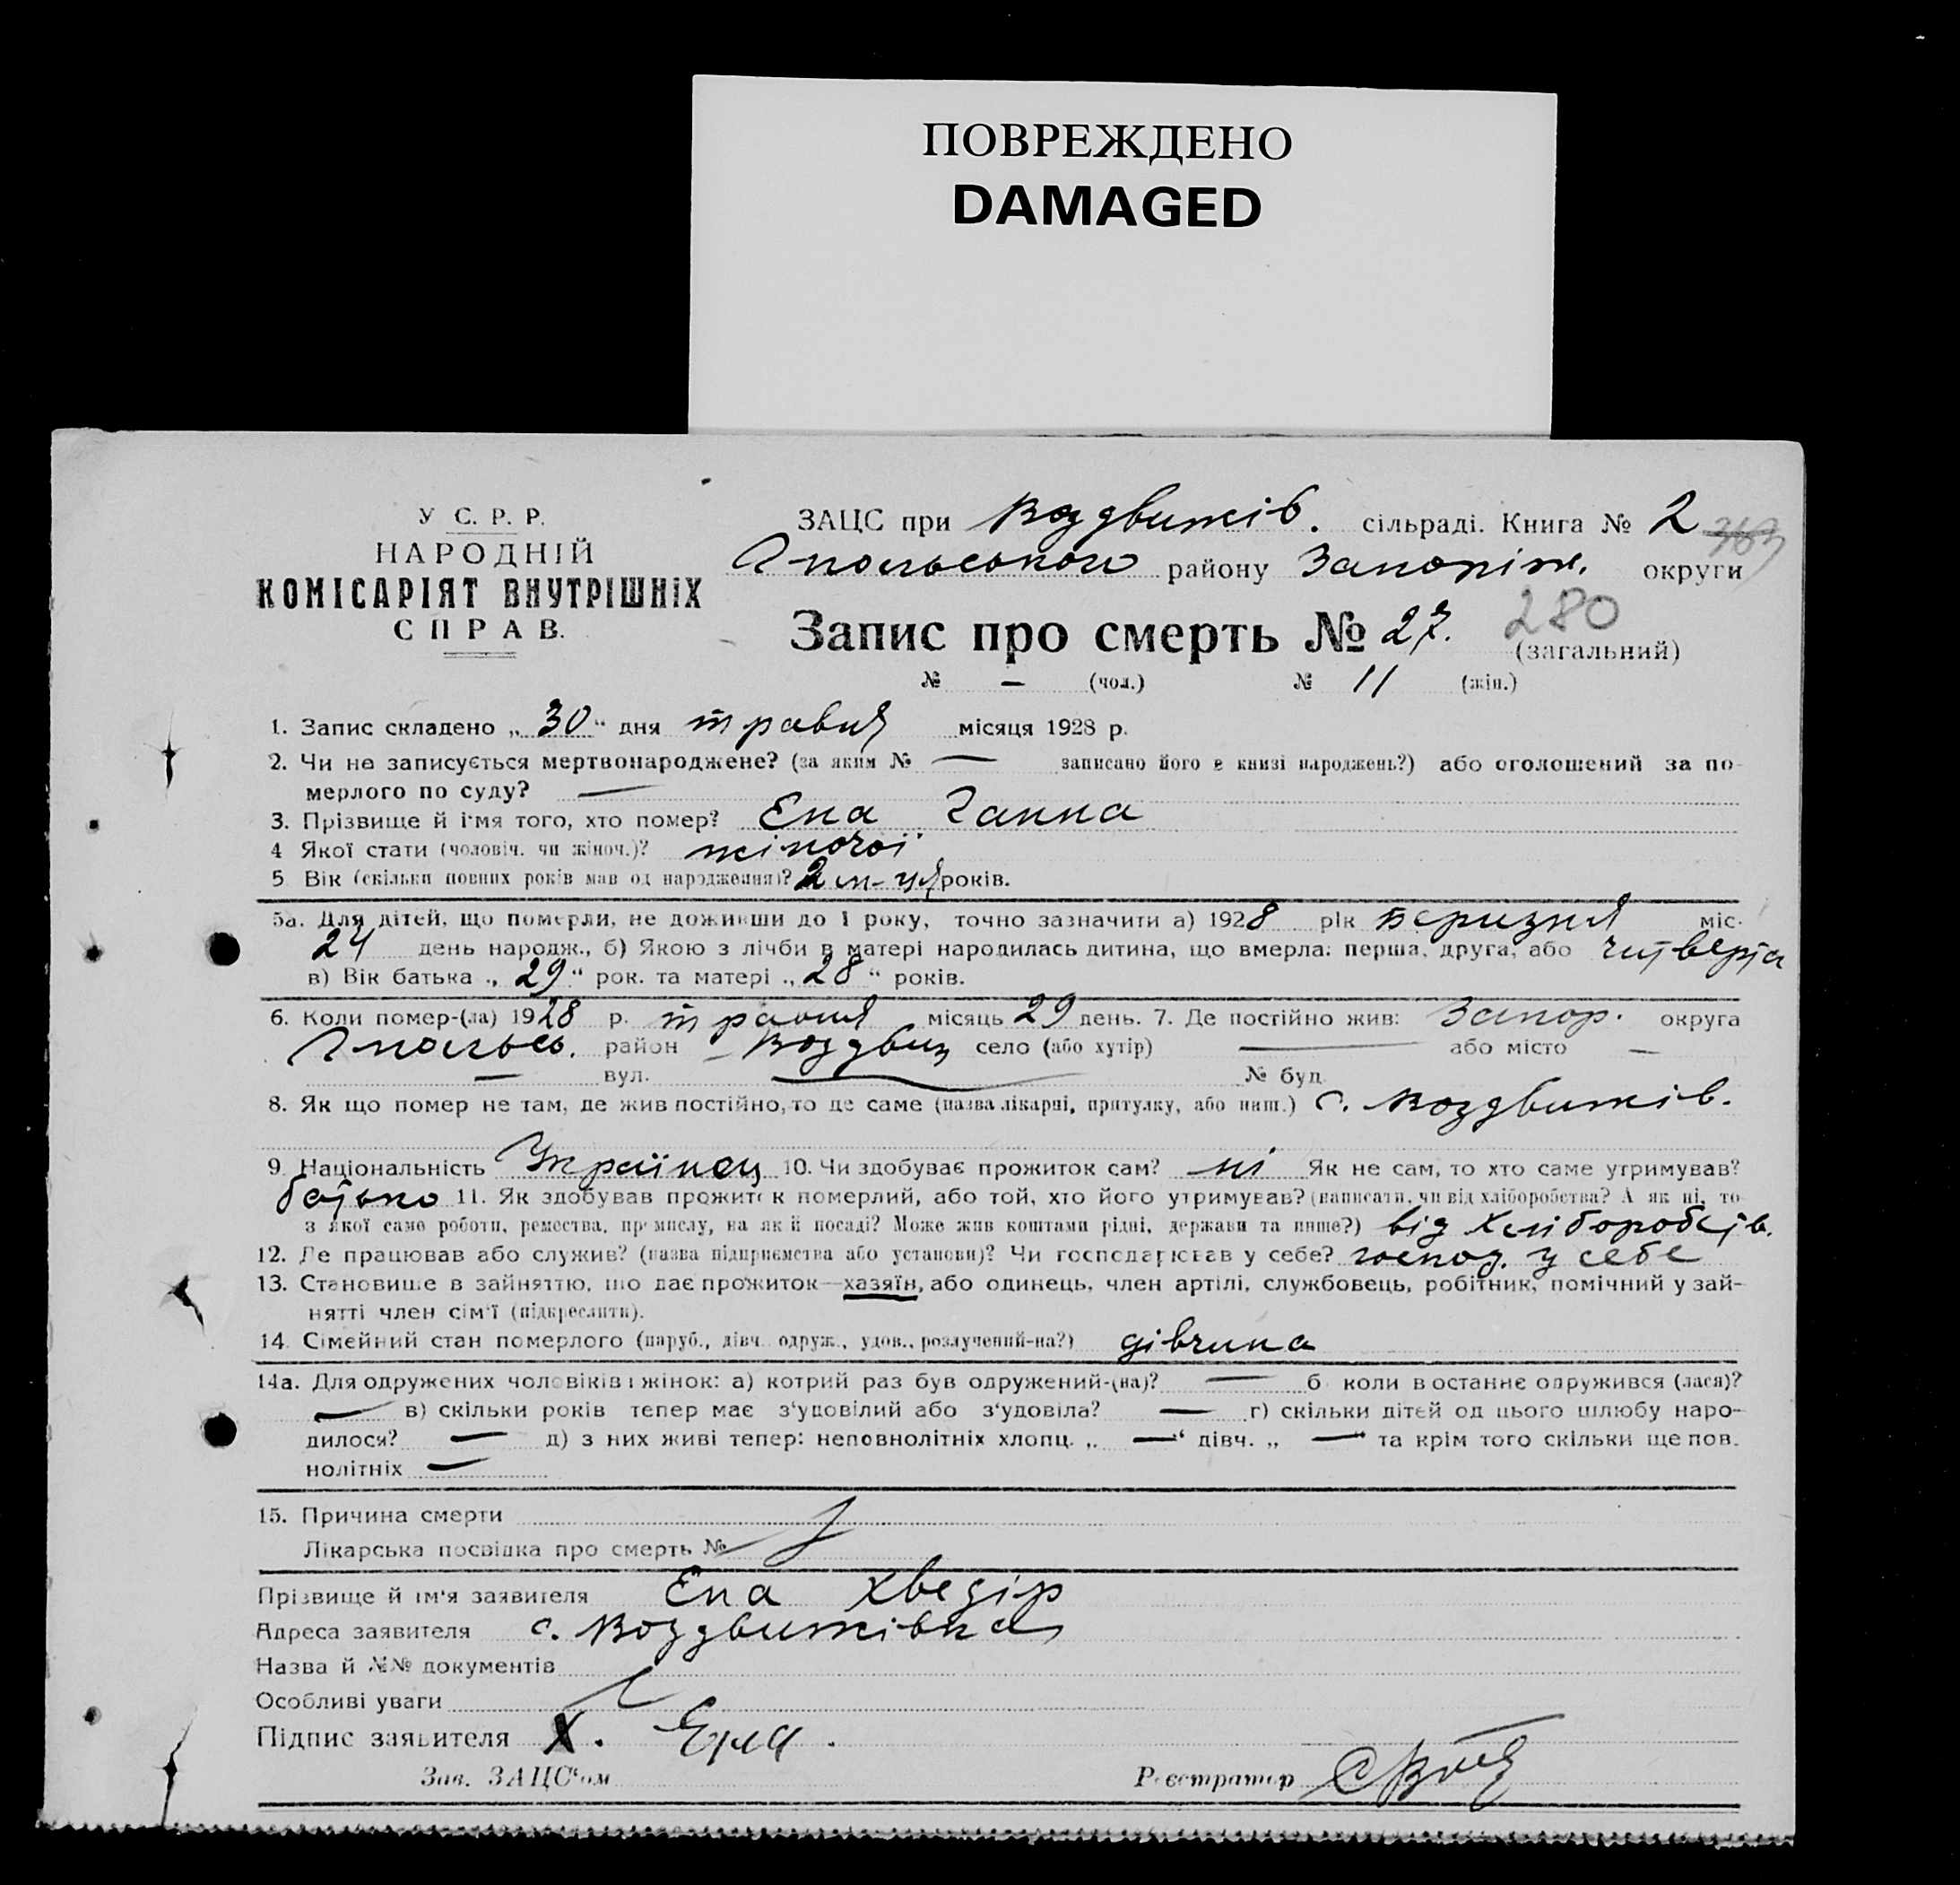 ПОВРЕЖДЕНО
DAMAGED
У С. Р. Р.
НАРОДНІЙ
КОМІСАРІЯТ ВНУТРІШНІХ
СПРАВ.
ЗАЦС при Воздвижів. сільраді. Книга № 2 363
Гпольського району Запоріж. округи
Запис про смерть № 27. 280
(загальний)
№ — (чол.) № 11 (жін.)
1. Запис складено „ 30 “ дня травня місяця 1928 р.
2. Чи не записується мертвонароджене? (за яким № — записано його в книзі народжень?) або оголошений за по-
мерлого по суду? —
3. Прізвище й ім'я того, хто помер? Епа Ганна
4 Якої стати (чоловіч. чи жіноч.)? жіночої
5 Вік (скільки повних років мав од народження)? 2 м-ця років.
5а. Для дітей, що померли, не доживши до 1 року, точно зазначити а) 1928 рік березня міс.
24 день народж., б) Якою з лічби в матері народилась дитина, що вмерла: перша, друга, або читверта
в) Вік батька „ 29 “ рок. та матері „ 28 “ років.
6. Коли помер-(ла) 1928 р. травня місяць 29 день. 7. Де постійно жив: Запор. округа
Гпольсь. район Воздвиж село (або хутір) — або місто —
— вул. — № буд.
8. Як що помер не там, де жив постійно, то де саме (назва лікарні, притулку, або инш.) с. Воздвижів.
9. Національність Українец 10. Чи здобуває прожиток сам? ні Як не сам, то хто саме утримував?
батько 11. Як здобував прожиток померлий, або той, хто його утримував? (написати, чи від хліборобства? А як ні, то
з якої саме роботи, ремества, промислу, на якій посаді? Може жив коштами рідні, держави та инше?) від хліборобств.
12. Де працював або служив? (назва підприємства або установи)? Чи господарював у себе? господ. у себе
13. Становище в зайняттю, що дає прожиток—хазяїн, або одинець, член артілі, службовець, робітник, помічний у зай-
нятті член сім'ї (підкреслити).
14. Сімейний стан померлого (паруб., дівч. одруж., удов., розлучений-на?) дівчина
14а. Для одружених чоловіків і жінок: а) котрий раз був одружений-(на)? — б коли в останнє одружився (лася)?
— в) скільки років тепер має з'удовілий або з'удовіла? — г) скільки дітей од цього шлюбу наро-
дилося? — д) з них живі тепер: неповнолітніх хлопц. „ — “ дівч. „ — “ та крім того скільки ще пов.
нолітніх —
15. Причина смерти
Лікарська посвідка про смерть №
Прізвище й ім'я заявителя Епа Хведір
Адреса заявителя с. Воздвижівка
Назва й №№ документів
Особливі уваги
Підпис заявителя Х. Епа.
Зав. ЗАЦС'ом Реєстратор